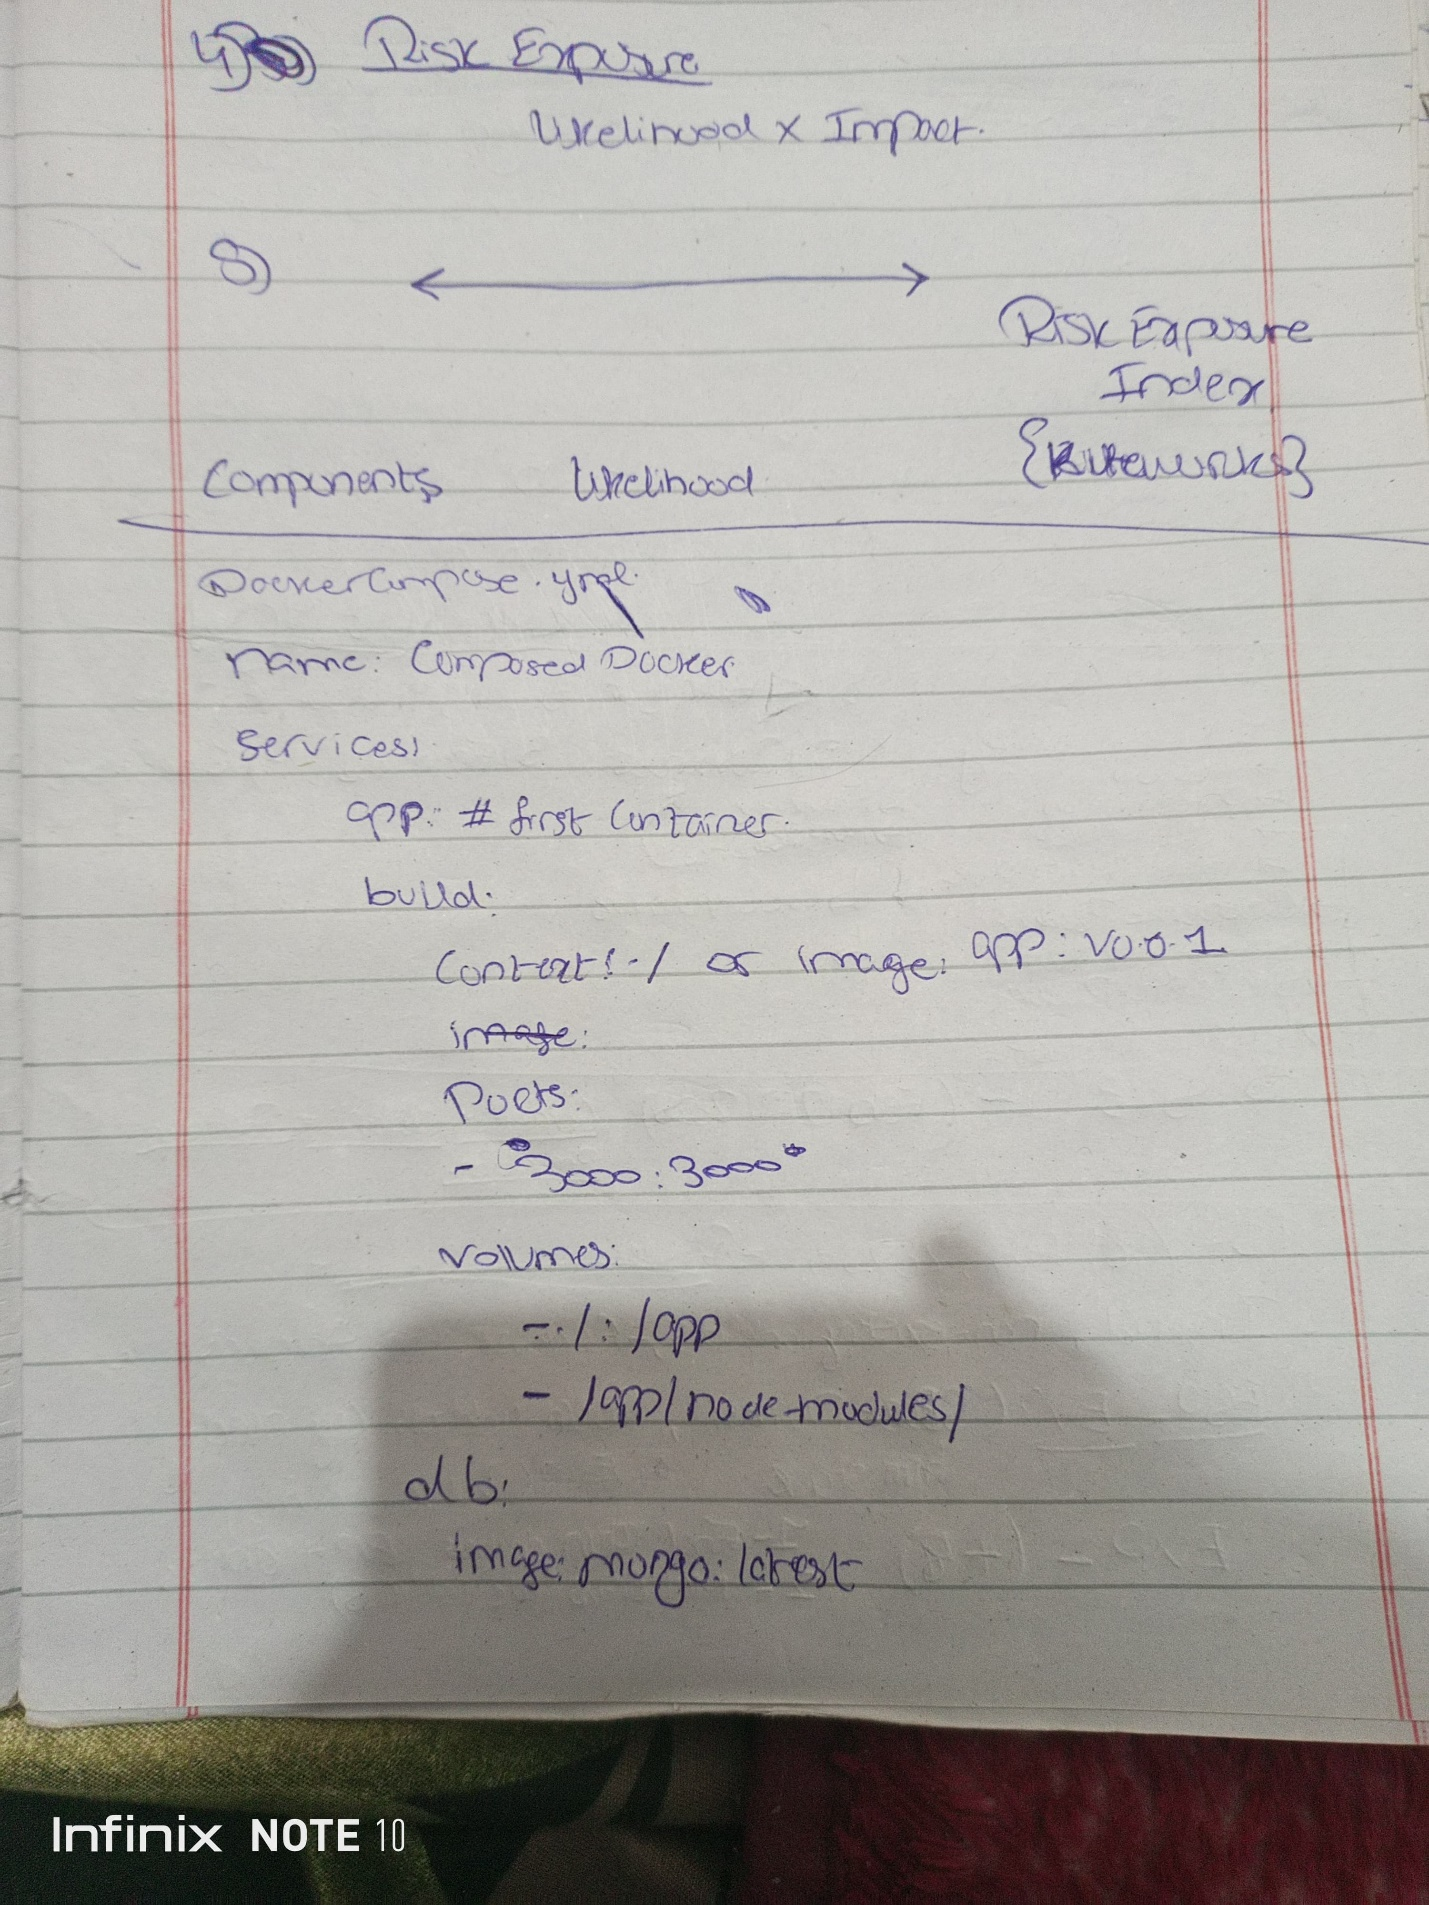 4) Risk Exposure
Likelihood x Impact.
8)
Risk Exposure
Index
Components Likelihood {Kiteworks}
DockerCompose.yml
name: Composed Docker
services:
app: # first Container.
build:
Context: ./ or image: app: v0.0.1
image:
Ports:
- "3000:3000"
volumes:
- ./:/app
- /app/node-modules/
db:
image: mongo: latest
Infinix NOTE 10